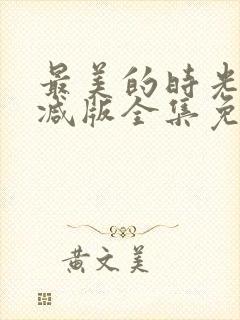 最美的時光
减版全集免
黄文美